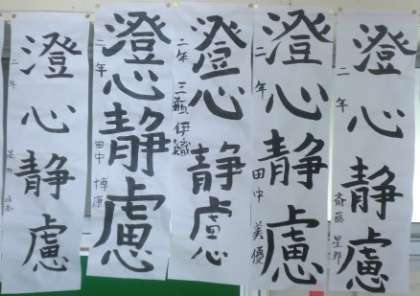 澄心静慮
二年
澄心静慮
二年 田中
澄心静慮
二年 三瓶
澄心静慮
二年 田中 美優
澄心静慮
二年 斎藤